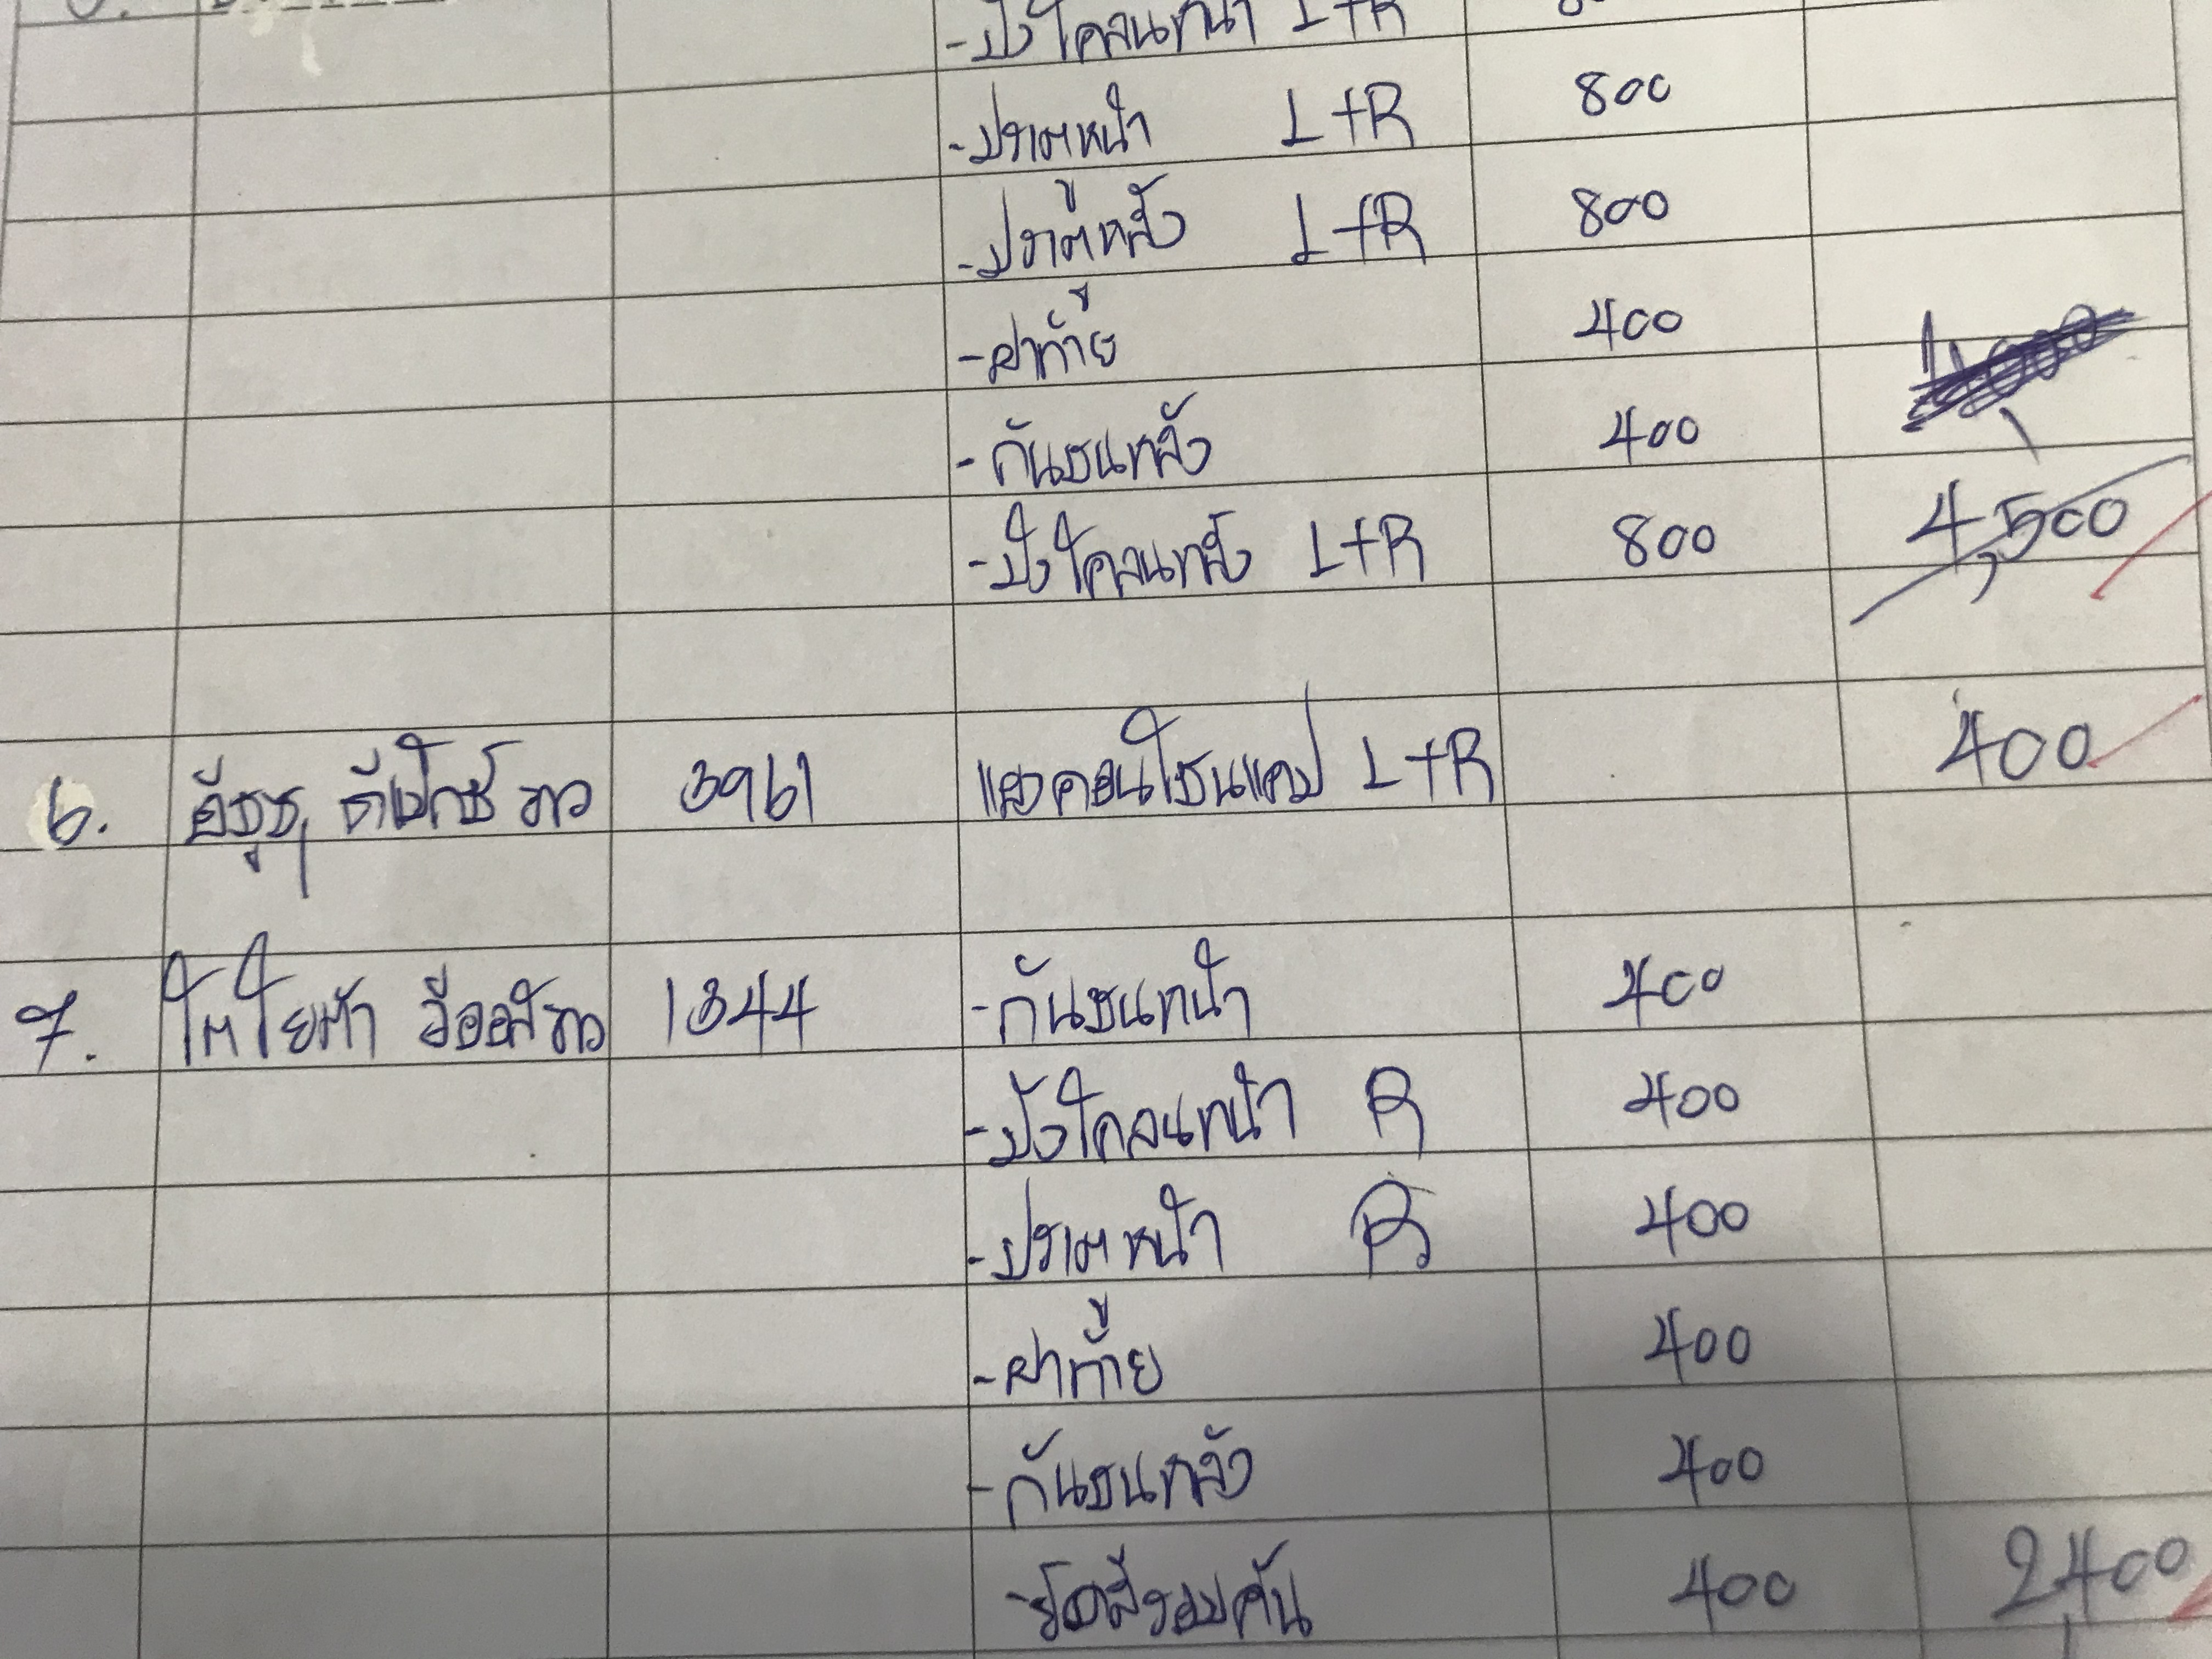 -บังโคลนหน้า L+R
-ประตหน้า L+R 800
-ประตูหลัง L+R 800
-ฝาท้าย 400
-กันชนหลัง 400
-บังโคลนหลัง L+R 800 4,500
6. อีซูซุ ดีแม็กซ์ ขาว 3961 แผงคอนโซนแคป L+R 400
7. โตโยต้า วีออสขาว 1344 -กันชนหน้า 400
-บังโคลนหน้า R 400
-ประตหน้า R 400
-ฝาท้าย 400
-กันชนหลัง 400
-ขัดสีรอบคัน 400 2,400